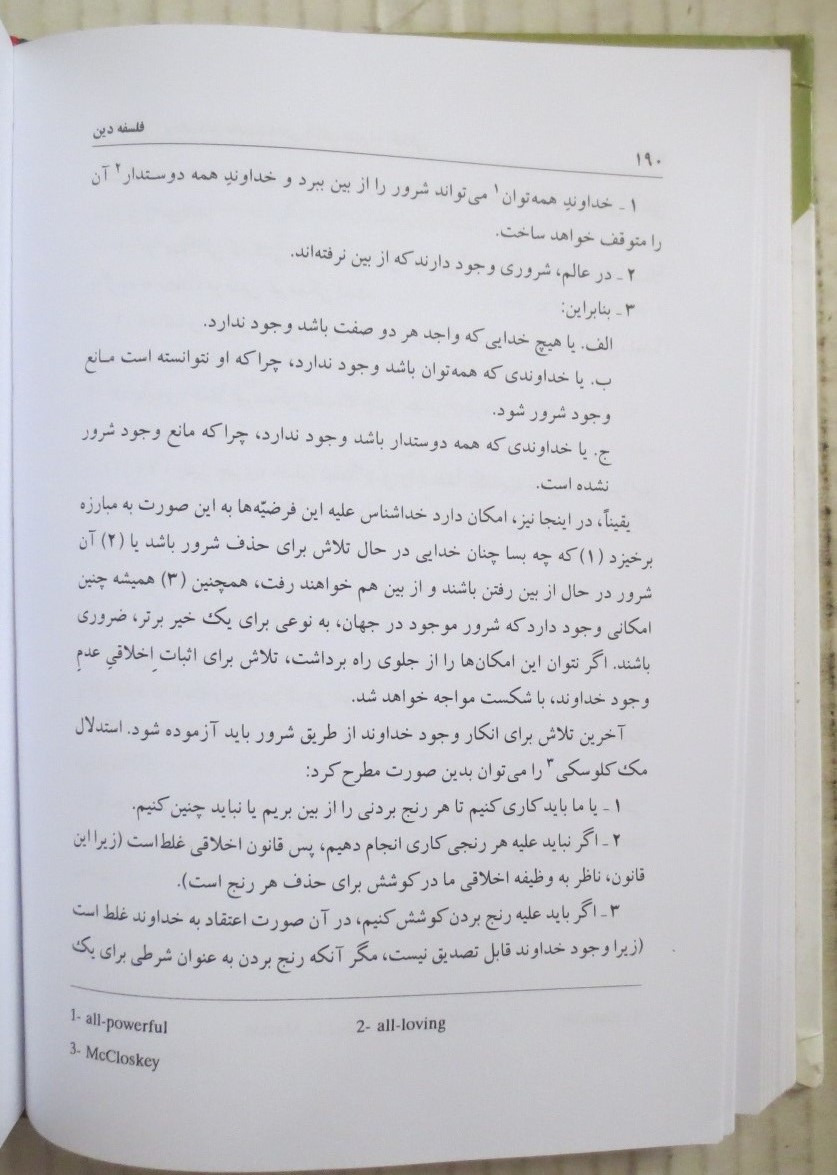 ۱۹۰
فلسفه دین
۱ ـ خداوندِ همه‌توان۱ می‌تواند شرور را از بین ببرد و خداوندِ همه دوستدار۲ آن
را متوقف خواهد ساخت.
۲ ـ در عالم، شروری وجود دارند که از بین نرفته‌اند.
۳ ـ بنابراین:
الف. یا هیچ خدایی که واجد هر دو صفت باشد وجود ندارد.
ب. یا خداوندی که همه‌توان باشد وجود ندارد، چراکه او نتوانسته است مانع
وجود شرور شود.
ج. یا خداوندی که همه دوستدار باشد وجود ندارد، چراکه مانع وجود شرور
نشده است.
یقیناً، در اینجا نیز، امکان دارد خداشناس علیه این فرضیّه‌ها به این صورت به مبارزه
برخیزد (۱) که چه بسا چنان خدایی در حال تلاش برای حذف شرور باشد یا (۲) آن
شرور در حال از بین رفتن باشند و از بین هم خواهند رفت، همچنین (۳) همیشه چنین
امکانی وجود دارد که شرور موجود در جهان، به نوعی برای یک خیر برتر، ضروری
باشند. اگر نتوان این امکان‌ها را از جلوی راه برداشت، تلاش برای اثباتِ اخلاقیِ عدمِ
وجود خداوند، با شکست مواجه خواهد شد.
آخرین تلاش برای انکار وجود خداوند از طریق شرور باید آزموده شود. استدلال
مک کلوسکی۳ را می‌توان بدین صورت مطرح کرد:
۱ ـ یا ما باید کاری کنیم تا هر رنج بردنی را از بین بریم یا نباید چنین کنیم.
۲ ـ اگر نباید علیه هر رنجی کاری انجام دهیم، پس قانون اخلاقی غلط است (زیرا این
قانون، ناظر به وظیفه اخلاقی ما در کوشش برای حذف هر رنج است).
۳ ـ اگر باید علیه رنج بردن کوشش کنیم، در آن صورت اعتقاد به خداوند غلط است
(زیرا وجود خداوند قابل تصدیق نیست، مگر آنکه رنج بردن به عنوان شرطی برای یک
1- all-powerful
2- all-loving
3- McCloskey